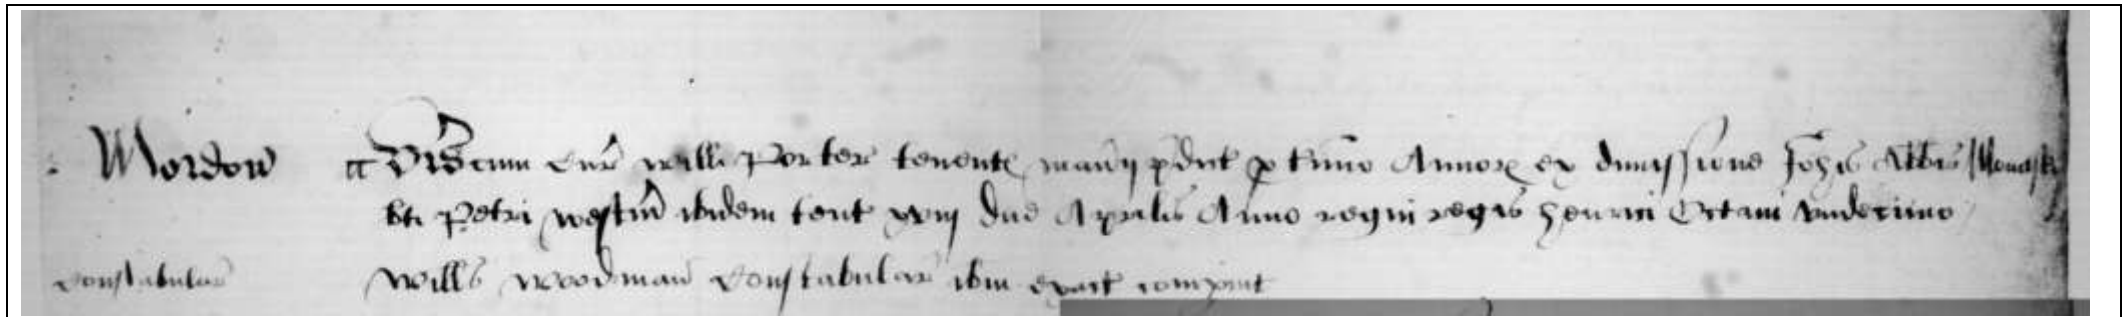 Mordon Vis cum Cur Willi Porter tenent manij pdict p tmino Annor ex dimissione Johis Abbis Monast
bti Petri Westm ibidem tent xviij die Aprilis Anno regni regis Henrici Octavi undecimo
Constabular Wills Woodman Constabular ibm exact compuit